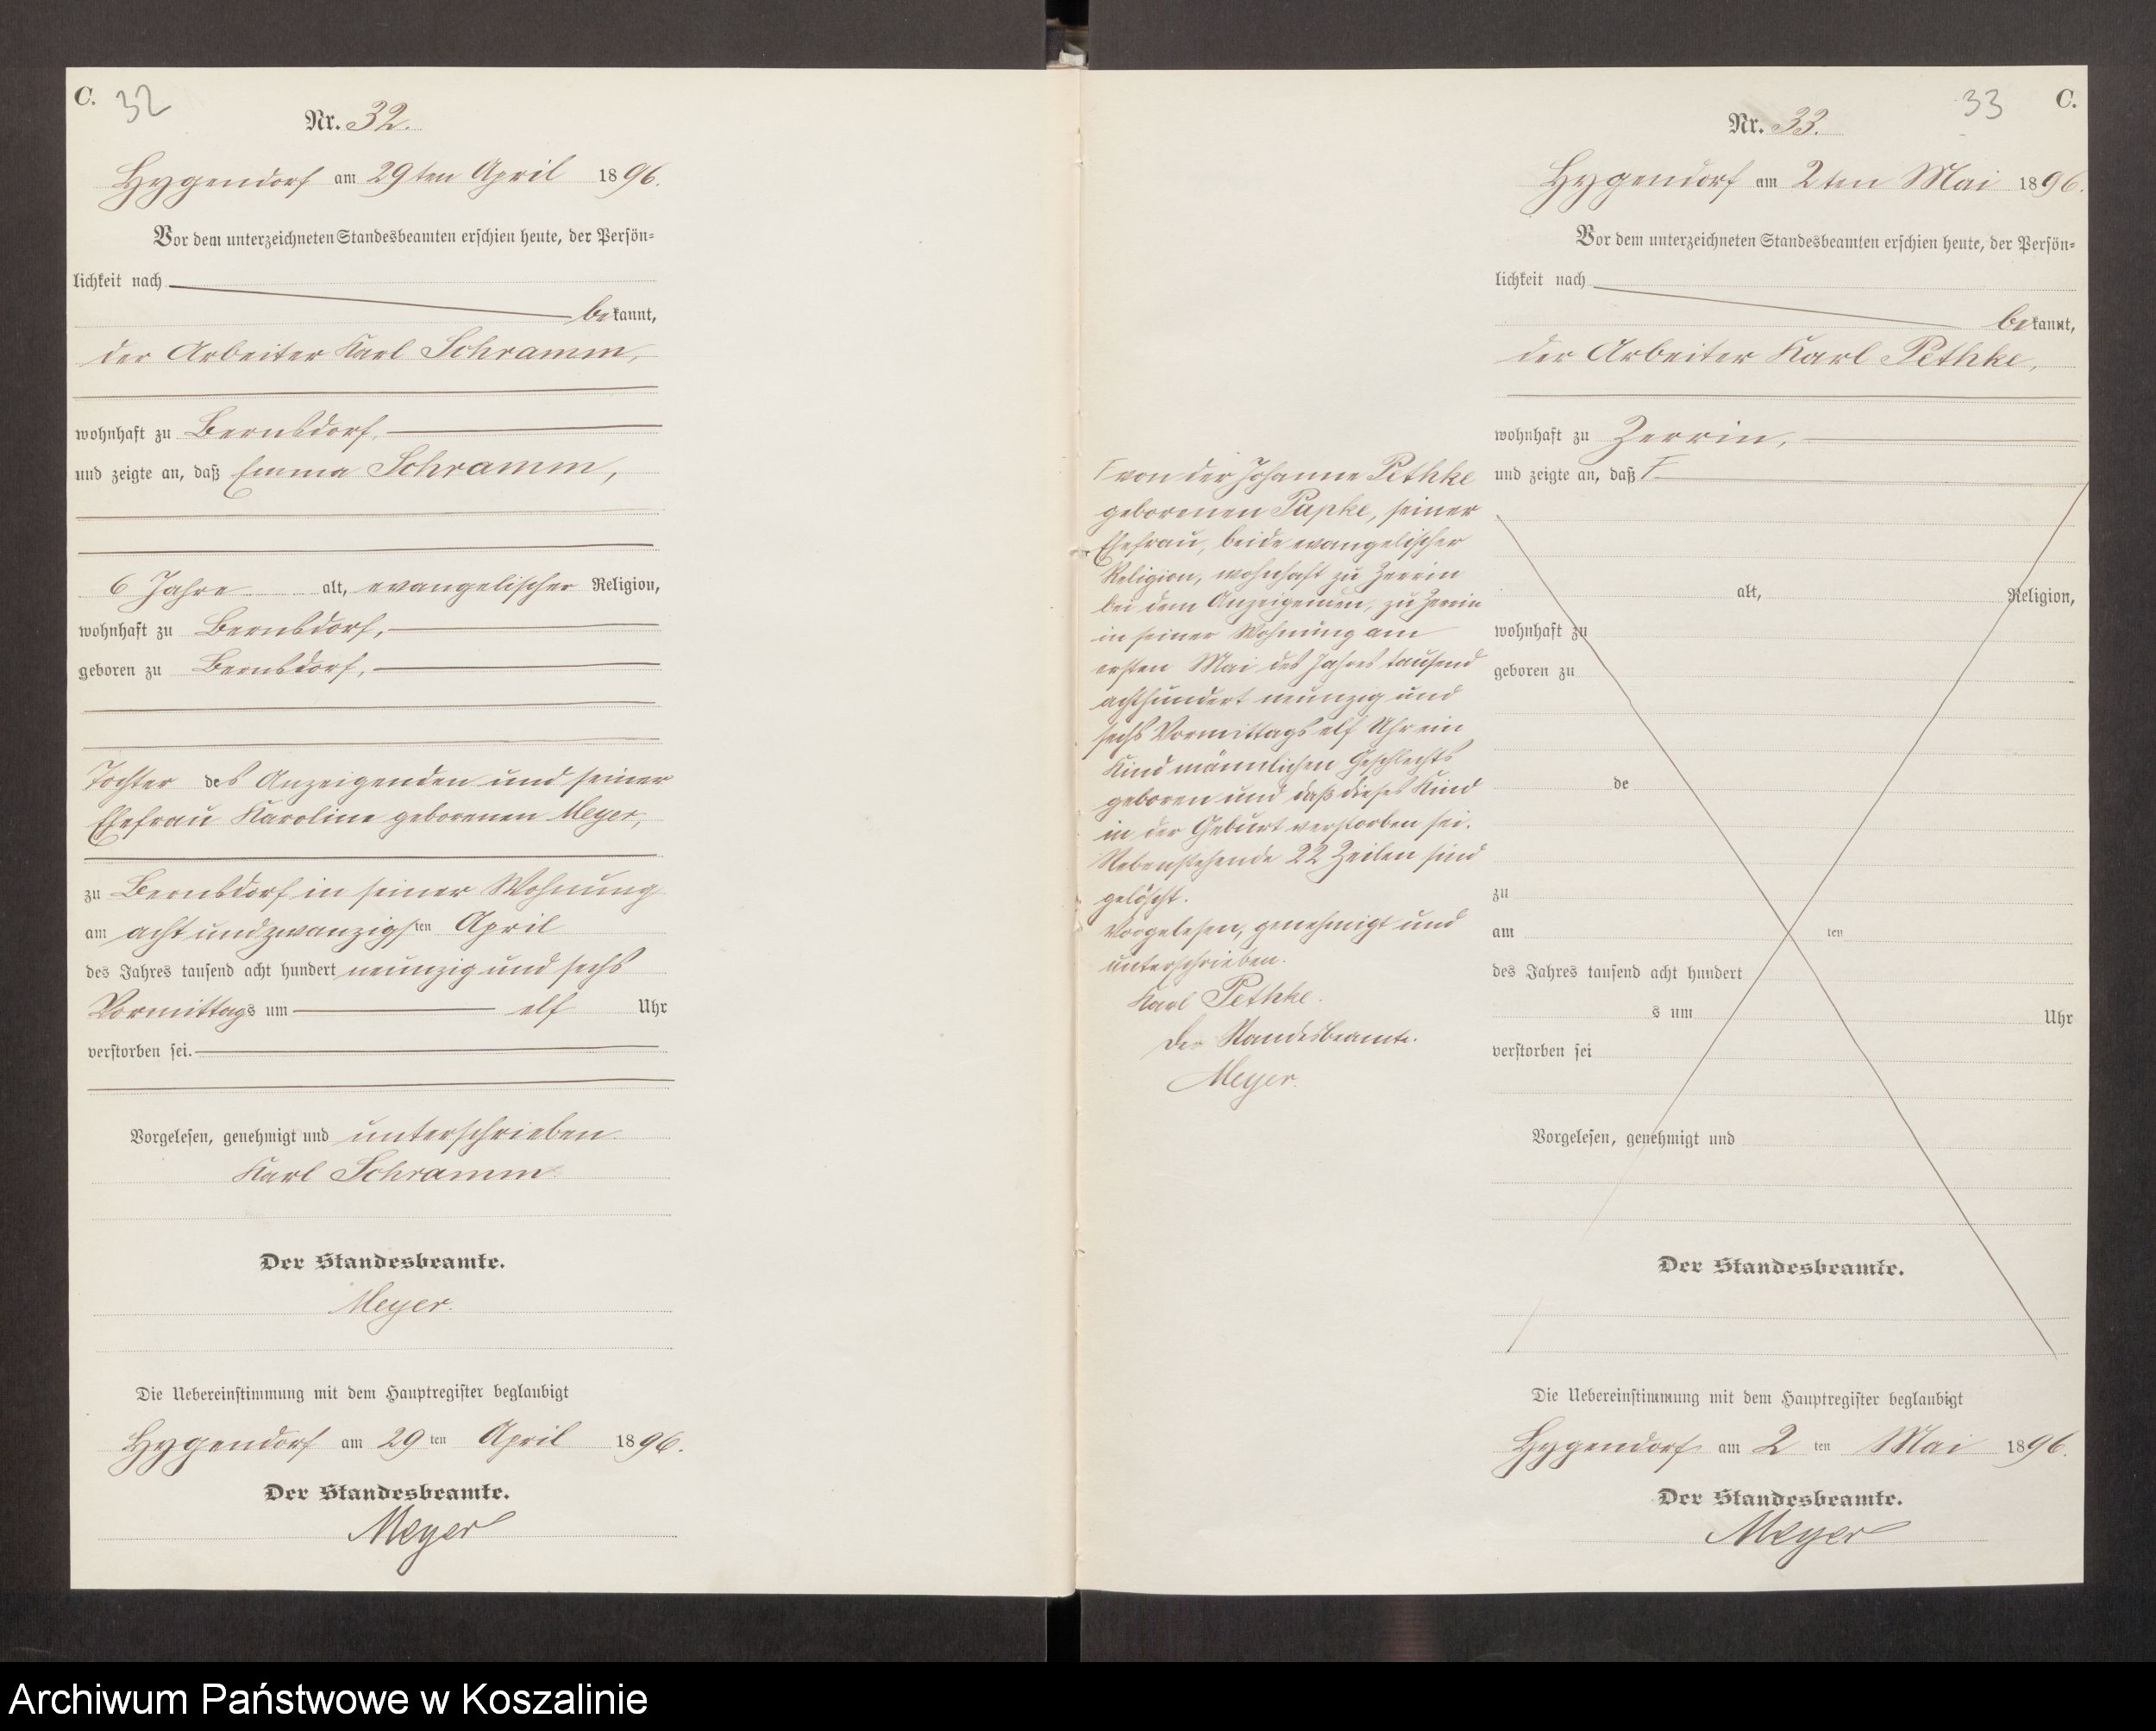 C. 32
Nr. 32.
Hygendorf am 29ten April 1896.
Vor dem unterzeichneten Standesbeamten erschien heute, der Persön-
lichkeit nach
bekannt,
der Arbeiter Karl Schramm,
wohnhaft zu Bernsdorf,
und zeigte an, daß Emma Schramm,
6 Jahre alt, evangelischer Religion,
wohnhaft zu Bernsdorf,
geboren zu Bernsdorf,
Tochter des Anzeigenden und seiner
Ehefrau Karoline geborenen Meyer,
zu Bernsdorf in seiner Wohnung
am acht und zwanzigsten April
des Jahres tausend acht hundert neunzig und sechs
Vormittags um elf Uhr
verstorben sei.
Vorgelesen, genehmigt und unterschrieben.
Karl Schramm.
Der Standesbeamte.
Meyer.
Die Uebereinstimmung mit dem Hauptregister beglaubigt
Hygendorf am 29 ten April 1896.
Der Standesbeamte.
Meyer
33 C.
Nr. 33.
Hygendorf am 2ten Mai 1896.
Vor dem unterzeichneten Standesbeamten erschien heute, der Persön-
lichkeit nach
bekannt,
der Arbeiter Karl Pethke,
wohnhaft zu Zerrin,
und zeigte an, daß F
F von der Johanne Pethke
geborenen Papke, seiner
Ehefrau, beide evangelischer
Religion, wohnhaft zu Zerrin
bei dem Anzeigenden, zu Zerrin
in seiner Wohnung am
ersten Mai des Jahres tausend
achthundert neunzig und
sechs Vormittags elf Uhr ein
Kind männlichen Geschlechts
geboren und daß dieses Kind
in der Geburt verstorben sei.
Nebenstehende 22 Zeilen sind
gelöscht.
Vorgelesen, genehmigt und
unterschrieben.
Karl Pethke.
Der Standesbeamte.
Meyer.
alt, Religion,
wohnhaft zu
geboren zu
de
zu
am ten
des Jahres tausend acht hundert
s um Uhr
verstorben sei
Vorgelesen, genehmigt und
Der Standesbeamte.
Die Uebereinstimmung mit dem Hauptregister beglaubigt
Hygendorf am 2 ten Mai 1896.
Der Standesbeamte.
Meyer
Archiwum Państwowe w Koszalinie